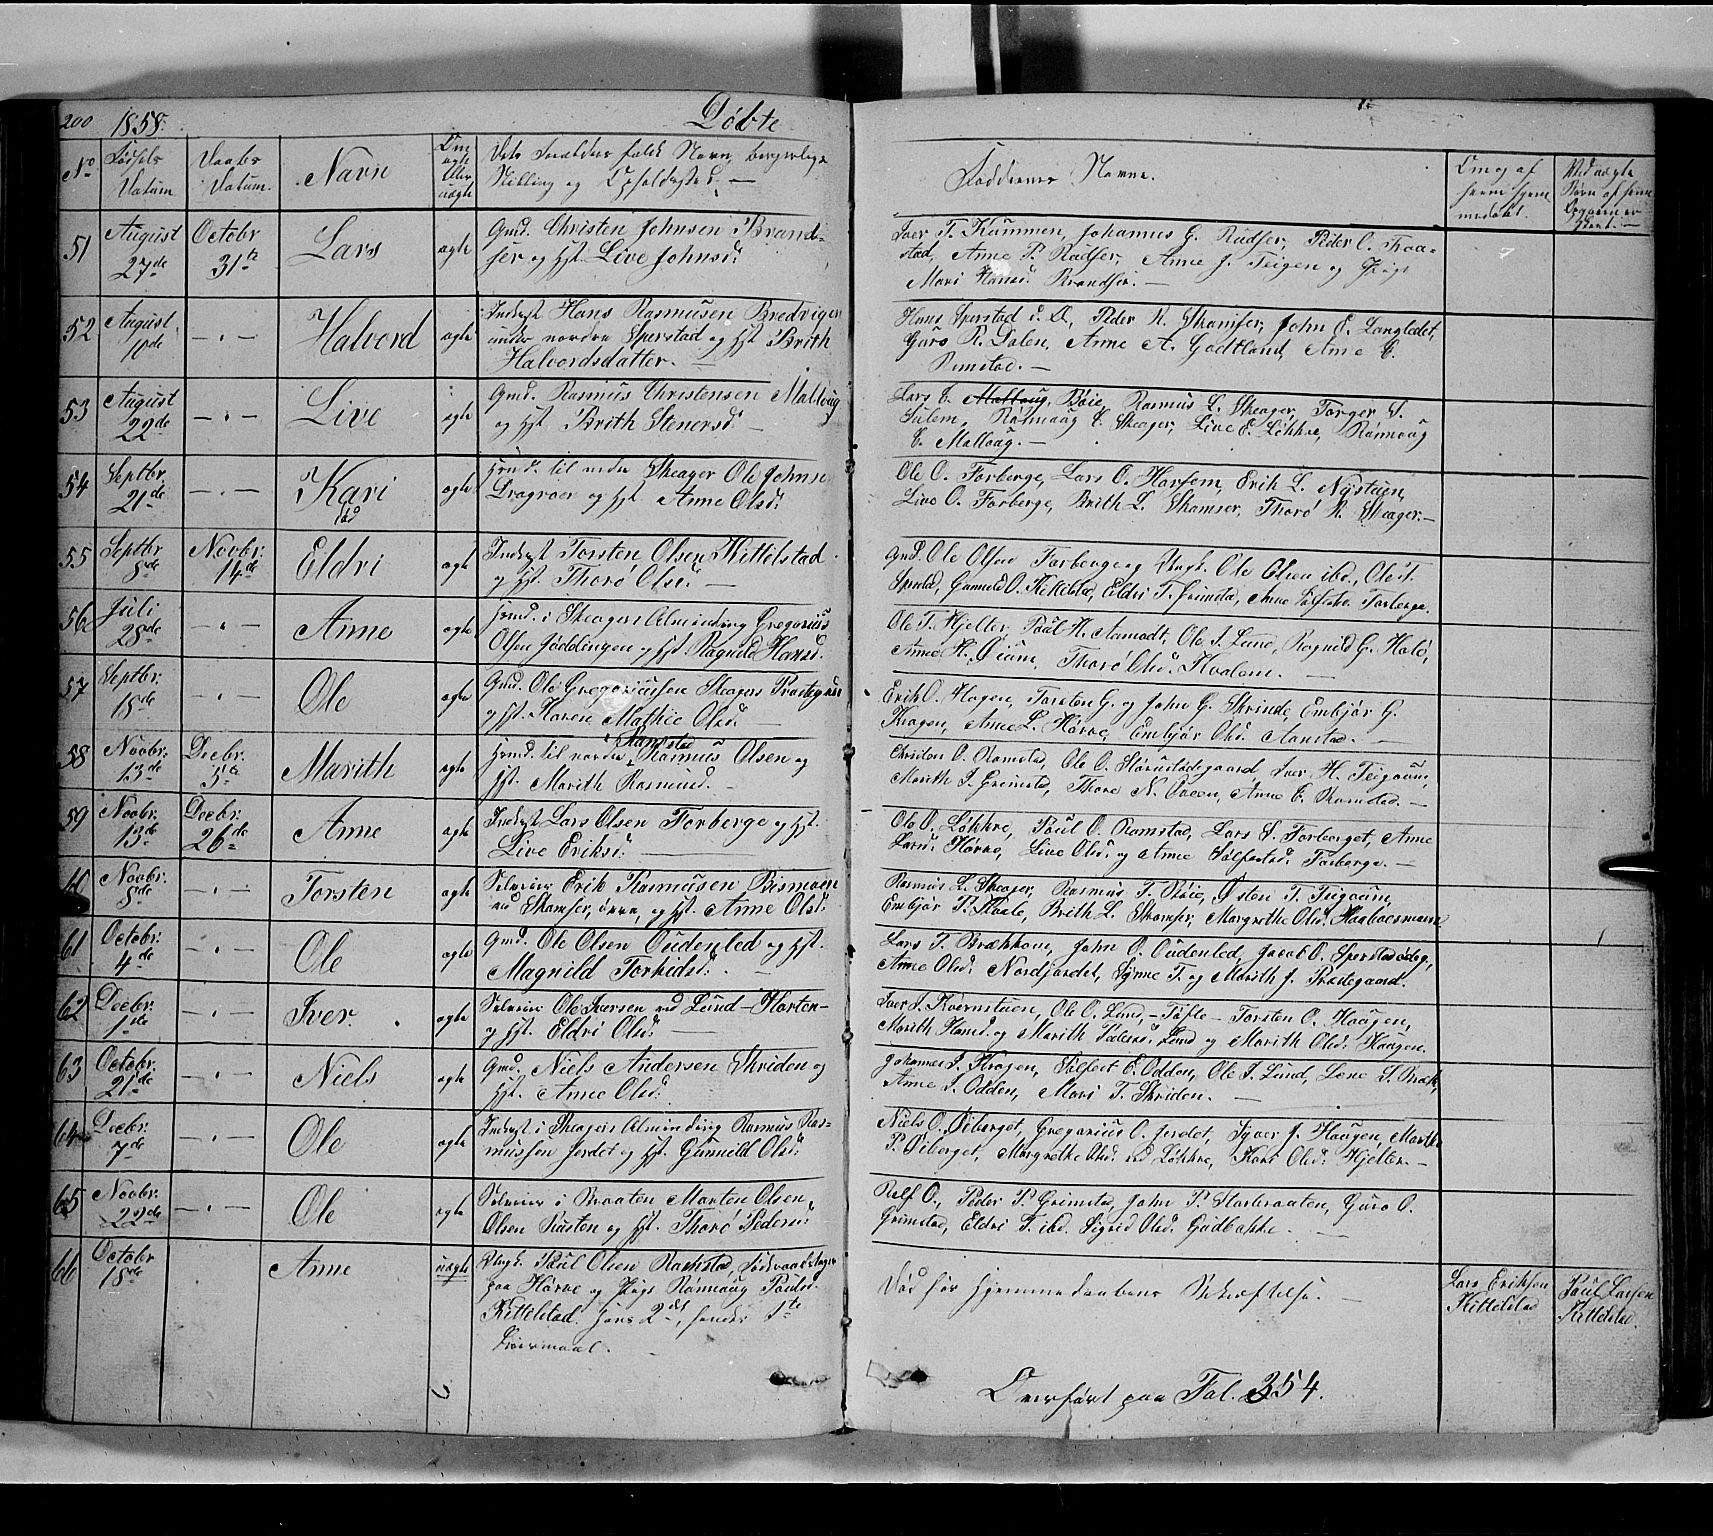 200 1858. Døbte
No Fødsels Datum Daabs Datum. Navn Om ægte eller uægte Forældres fulde Navn, borgerlige Stilling og Opholdssted. — Faddernes Navne. Om og af hvem hjemmedøbt. Ved uægte
51 August 27de Octobr 31te Lars ægte Gmd. Christen Johnsen Brand-
ser og Hst. Live Johnsd:
Iver T. Kammen, Johannes G. Rudser, Peder O. Fraa-
stad, Anne P. Rudser, Anne J. Teigen og Pige
Mari Hansd. Brandser. —
52 August 10de — " — Halvord ægte Inderst Hans Rasmusen Bredvigen
under nordre Sperstad og Hst. Brith
Halvordsdatter. —
Hans Sperstad d. Æ, Peder R. Skamser, John E. Langledet,
Guro R. Dalen, Anne A. Godtland, Anne E.
Ramstad. —
53 August 22de — " — Live ægte Gmd. Rasmus Christensen Mallaug
og Hst. Brith Stenersd: —
Lars C. Bøie, Rasmus L. Skeager, Torger S.
Sulem, Rønnaug C. Skeager, Live E. Løkkre, Rønnaug
C. Mallaug. —
54 Septbr. 21de — " — Kari ægte Hmd. til nedre Skeager Ole Johnsen
Dragroen og Hst. Anne Olsd:
Ole O. Forberge, Lars O. Harsem, Erik L. Nystuen,
Live O. Forberge, Brith L. Skamser, Thorø R. Skeager. —
55 Septbr 8de Novbr. 14de Eldri ægte Inderst Torsten Olsen Kittelstad
og Hst. Thorø Olsd: —
Gmd. Ole Olsen Forberge og Ungk. Ole Olsen ibd., Ole T.
Gunnild O. Kittelstad, Eldri T. Grimstad, Anne Forberge.
56 Juli 28de — " — Anne ægte Hmd. i Skeagers Almending Gregorius
Olsen Jøddingen og Hst. Ragnild Hansd.
Ole T. Hjeller, Paul H. Aamodt, Ole I. Lund, Ragnild G. Holø,
Anne H. Øium, Thorø Olsd. Kvalem. —
57 Septbr. 18de — " — Ole ægte Gmd. Ole Gregoriussen Skeagers Præstegaard
og Hst. Karen Mathie Olsd. —
Erik O. Hagen, Torsten G. og John G. Skrinde, Embjør G.
Kragen, Anne L. Hørve, Embjør Olsd. Aanstad. —
58 Novbr. 13de Decbr. 5te Marith ægte Hmd. til nordre Ramstad Rasmus Olsen og
Hst. Marith Rasmusd. —
Christen O. Ramstad, Ole O. Iver H. Teigaum,
Marith J. Grimstad, Thore N. Anne E. Ramstad. —
59 Novbr. 13de Decbr. 26de Anne ægte Inderst Lars Olsen Forberge og Hst.
Live Eriksd: —
Ole O. Løkkre, Paul O. Ramstad, Lars S. Forberget, Anne
Larsd: Hørve, Live Olsd. og Anne Forberge. —
60 Novbr. 8de — " — Torsten ægte Selveier Erik Rasmusen Bismoen
ved Skamser, øvre, og Hst. Anne Olsd:
Rasmus L. Skeager, Rasmus T. Bøie, Østen T. Teigaum,
Embjør P. Kvale, Brith L. Skamser, Margrethe Olsd.
61 Octobr. 4de — " — Ole ægte Gmd. Ole Olsen Oudenled og Hst.
Magnild Torkildsd: —
Lars T. Brækkom, John O. Oudenled, Jacob O.
Anne Olsd. Nordjordet, Synne T. og Marith J. Prædegaard.
62 Decbr. 1de — " — Iver. ægte Selveier Ole Iversen ved Lund-Horten-
og Hst. Eldri Olsd: —
Iver I. Kvernstuen, Ole O. Lund, — Tufte — Torsten O. Haagen,
Marith Hansd. og Marith Lund og Marith Olsd. Haagen.
63 Octobr. 21de — " — Niels ægte Gmd. Niels Andersen Skriden og
Hst. Anne Olsd: —
Johannes I. Kragen, Sølfest E. Odden, Ole I. Lund, Lene S. Bræk,
Anne I. Odden, Mari T. Skriden. —
64 Decbr. 7de — " — Ole ægte Inderst i Skeagers Almending Rasmus Ras-
mussen Jordet og Hst. Gunnild Olsd:
Niels O. Øiberget, Gregorius O. Jordet, Sjver J. Haugen, Marith
P. Øiberget, Margrethe Olsd. ved Løkkre, Kari Olsd. Hjeller. —
65 Novbr. 22de — " — Ole ægte Selveier i Braaten Morten Olsen,
Olsen Rusten og Hst. Thorø Pedersd:
Rolf O., Peder P. Grimstad, John P. Storbraaten, Guro O.
Grimstad, Eldri T. ibd. Sigrid Olsd. Gudbakke. —
66 Octobr 18de Anne uægte Ungk. Paul Olsen Ramstad,
paa Hørve og Pige Rønnaug Paulsd.
Kittelstad. Hans 2det, hendes 1ste
Leiermaal. —
Død før Hjemmedaabens Bekræftelse. —
Lars Eriksen
Kittelstad
Paul Larsen
Kittelstad.
Overført paa Fol. 354.